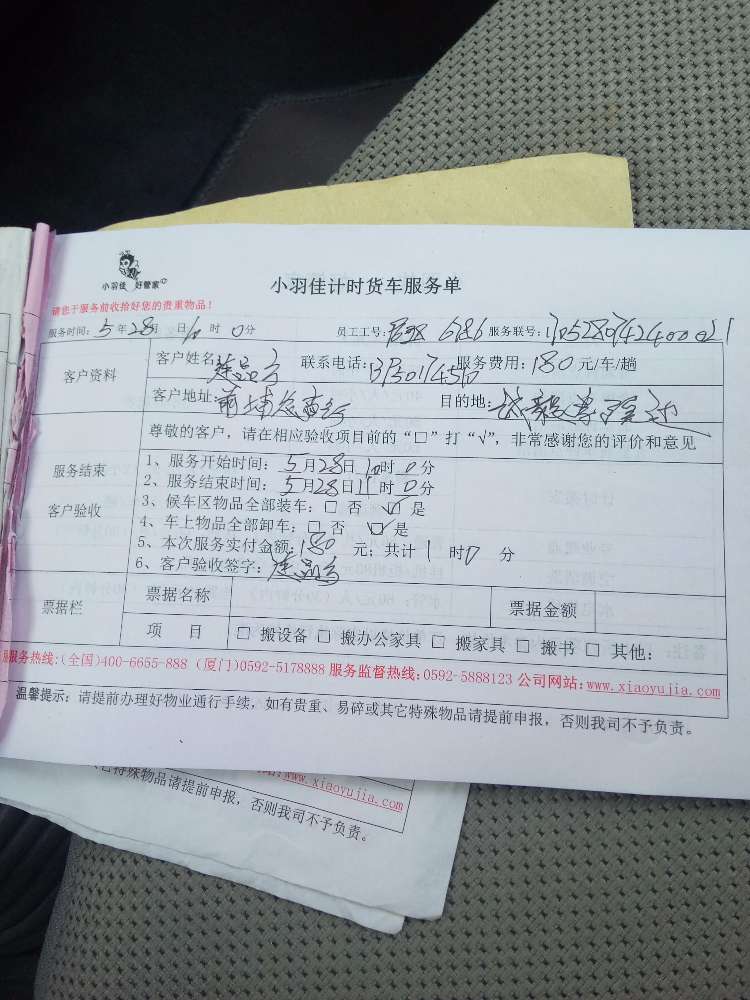 小羽佳 好管家
小羽佳计时货车服务单
请您于服务前收拾好您的贵重物品!
服务时间: 5 年 28 月 日 10 时 0 分 员工工号: 6186 服务联号:
客户资料 客户姓名: 联系电话: 服务费用: 180 元/车/趟
客户地址: 目的地:
尊敬的客户,请在相应验收项目前的“□”打“√”,非常感谢您的评价和意见
服务结束
客户验收
1、服务开始时间: 5 月 28 日 10 时 0 分
2、服务结束时间: 5 月 28 日 11 时 0 分
3、候车区物品全部装车: □ 否 ☑ 是
4、车上物品全部卸车: □ 否 ☑ 是
5、本次服务实付金额: 180 元; 共计 1 时 0 分
6、客户验收签字:
票据栏 票据名称 票据金额
项 目 □ 搬设备 □ 搬办公家具 □ 搬家具 □ 搬书 □ 其他:
服务热线:(全国)400-6655-888 (厦门)0592-5178888 服务监督热线:0592-5888123 公司网站:www.xiaoyujia.com
温馨提示: 请提前办理好物业通行手续,如有贵重、易碎或其它特殊物品请提前申报,否则我司不予负责。
www.xiaoyujia.com
特殊物品请提前申报,否则我司不予负责。